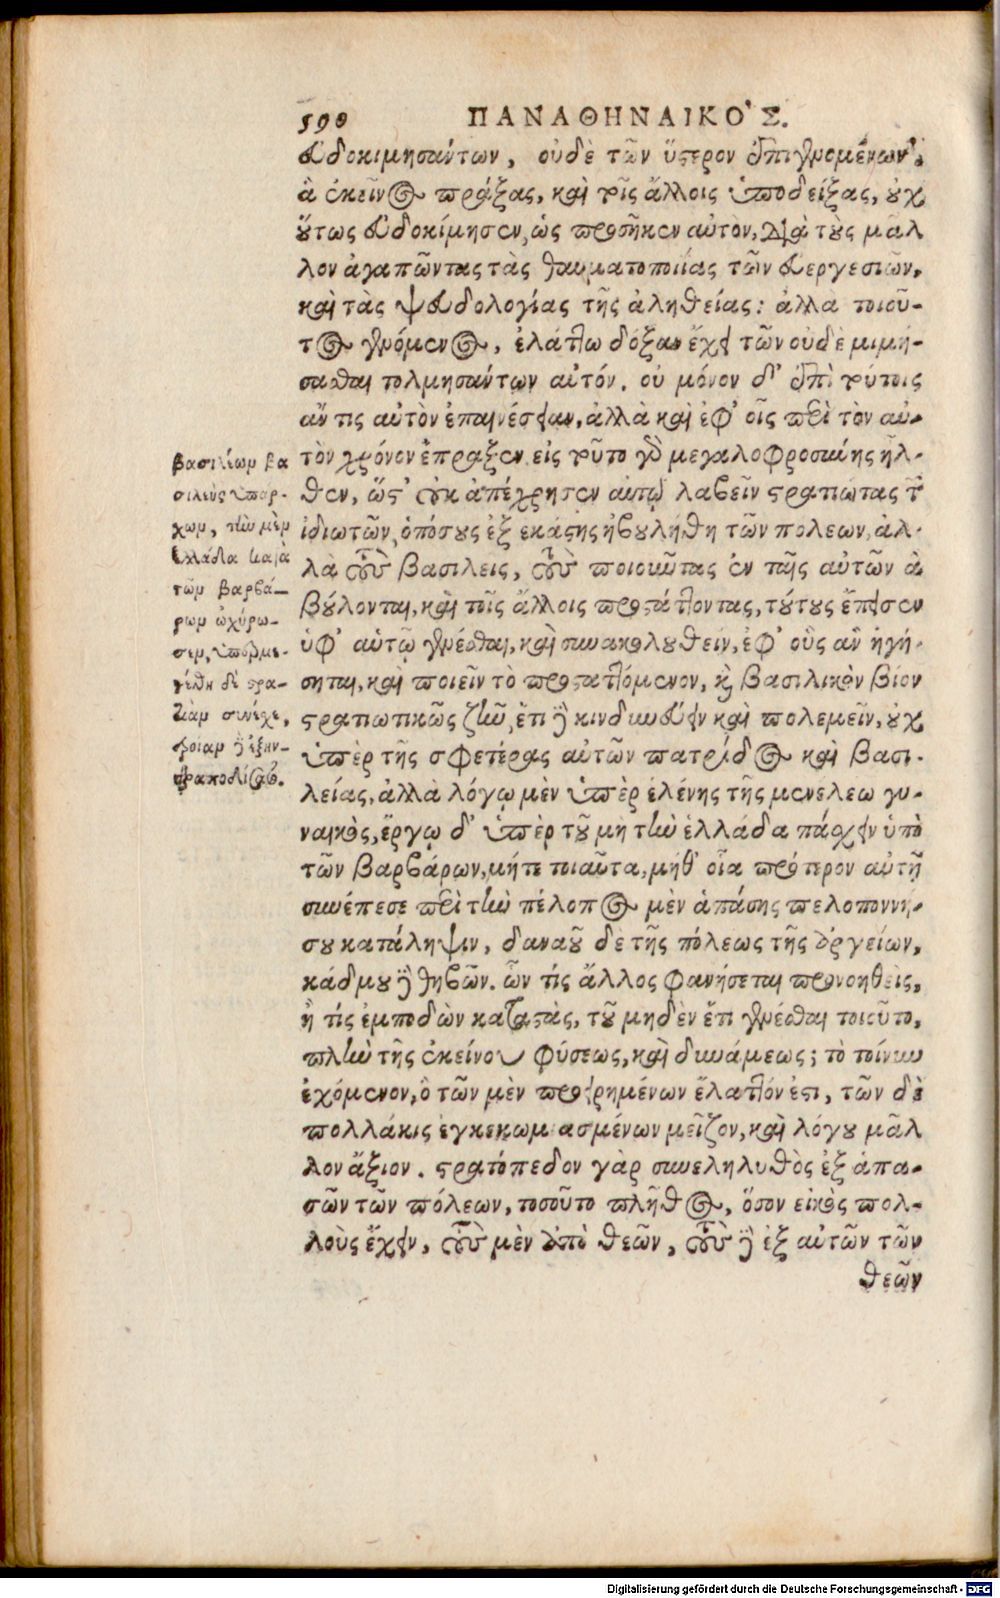 590 ΠΑΝΑΘΗΝΑΙΚΟ'Σ.
εὐδοκιμησάντων, οὐδὲ τῶν ὕστερον ἐπιγενομένων.
ἃ ἐκεῖνος πράξας, καὶ τοῖς ἄλλοις ὑποδείξας, οὐχ
οὕτως εὐδοκίμησεν, ὡς προσῆκεν αὐτὸν, διὰ τοὺς μᾶλ
λον ἀγαπῶντας τὰς θαυματοποιίας τῶν εὐεργεσιῶν,
καὶ τὰς ψευδολογίας τῆς ἀληθείας: ἀλλὰ τοιοῦ-
τος γενόμενος, ἐλάττω δόξαν ἔχει τῶν οὐδὲ μιμή-
σασθαι τολμησάντων αὐτόν. οὐ μόνον δ' ἐπὶ τούτοις
ἄν τις αὐτὸν ἐπαινέσειεν, ἀλλὰ καὶ ἐφ' οἷς περὶ τὸν αὐ-
τὸν χρόνον ἔπραξεν. εἰς τοῦτο γὰρ μεγαλοφροσύνης ἦλ-
θεν, ὥστ' οὐκ ἀπέχρησεν αὐτῷ λαβεῖν στρατιώτας τῶν
ἰδιωτῶν, ὁπόσους ἐξ ἑκάστης ἠβουλήθη τῶν πόλεων, ἀλ-
λὰ τοὺς βασιλεῖς, τοὺς ποιοῦντας ἐν ταῖς αὐτῶν ἃ
βούλονται, καὶ τοῖς ἄλλοις προστάττοντας, τούτους ἔπεισεν
ὑφ' αὑτῷ γενέσθαι, καὶ συνακολουθεῖν, ἐφ' οὓς ἂν ἡγή-
σηται, καὶ ποιεῖν τὸ προσταττόμενον, καὶ βασιλικὸν βίον
στρατιωτικῶς ζῆν, ἔτι δὲ κινδυνεύειν καὶ πολεμεῖν, οὐχ
ὑπὲρ τῆς σφετέρας αὐτῶν πατρίδος καὶ βασι-
λείας, ἀλλὰ λόγῳ μὲν ὑπὲρ ἑλένης τῆς μενελεω γυ-
ναικὸς, ἔργῳ δ' ὑπὲρ τοῦ μὴ τὴν ἑλλάδα πάσχειν ὑπὸ
τῶν βαρβάρων, μήτε τοιαῦτα, μήθ' οἷα πρότερον αὐτῇ
συνέπεσε περὶ τὴν πέλοπος μὲν ἁπάσης πελοποννή-
σου κατάληψιν, δαναοῦ δὲ τῆς πόλεως τῆς ἀργείων,
κάδμου δὲ θηβῶν. ὧν τίς ἄλλος φανήσεται προνοηθεὶς,
ἢ τίς ἐμποδὼν καταστὰς, τοῦ μηδὲν ἔτι γενέσθαι τοιοῦτο,
πλὴν τῆς ἐκείνου φύσεως, καὶ δυνάμεως; τὸ τοίνυν
ἐχόμενον, ὃ τῶν μὲν προειρημένων ἔλαττόν ἐστι, τῶν δὲ
πολλάκις ἐγκεκωμιασμένων μεῖζον, καὶ λόγου μᾶλ
λον ἄξιον. στρατόπεδον γὰρ συνεληλυθὸς ἐξ ἁπα-
σῶν τῶν πόλεων, τοσοῦτο πλῆθος, ὅσον εἰκὸς πολ-
λοὺς ἔχειν, τοὺς μὲν ἀπὸ θεῶν, τοὺς δὲ ἐξ αὐτῶν τῶν
θεῶν
βασιλέων βα
σιλεὺς ὑπάρ-
χων, τὴν μὲν
ἑλλάδα κατὰ
τῶν βαρβά-
ρων ὠχύρω-
σεν,
στρα-
τιὰν συνέχε,
τροίαν δὲ ἐξην-
δραποδίσατο.
Digitalisierung gefördert durch die Deutsche Forschungsgemeinschaft - DFG